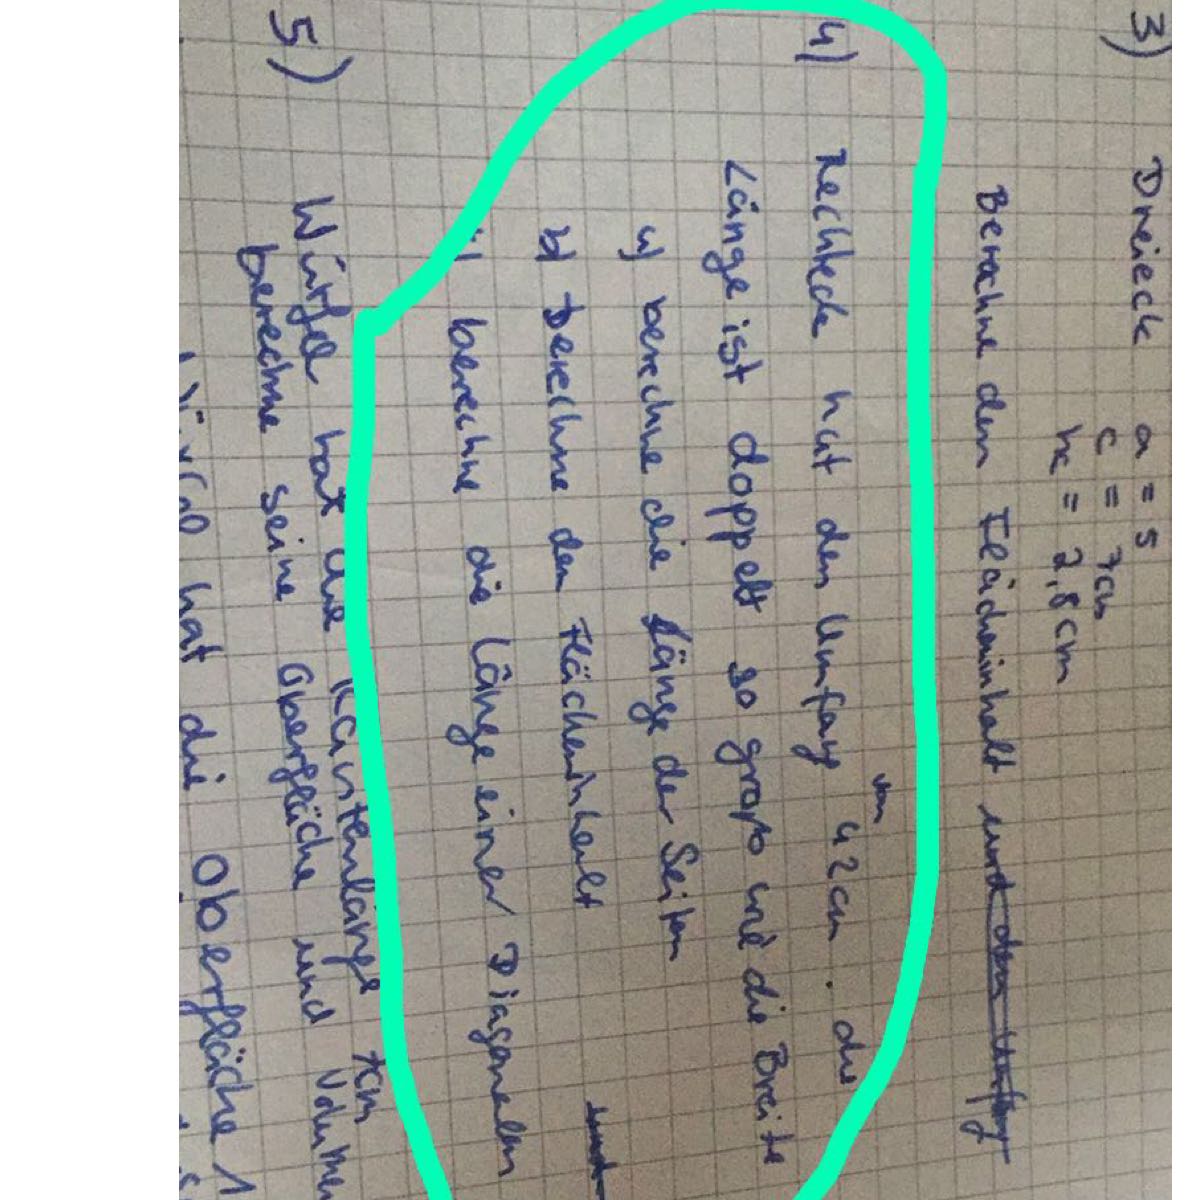 3) Dreieck a = 5
c = 7cm
hc = 2,8cm
Berechne den Flächeninhalt und den Umfang
4) Rechteck hat den Umfang von 42cm. die
Länge ist doppelt so groß wie die Breite
a) berechne die Länge der Seiten
b) Berechne den Flächeninhalt
c) berechne die Länge einer Diagonalen
5) Würfel hat eine Kantenlänge 7cm
berechne seine Oberfläche und Volumen
Würfel hat die Oberfläche 1